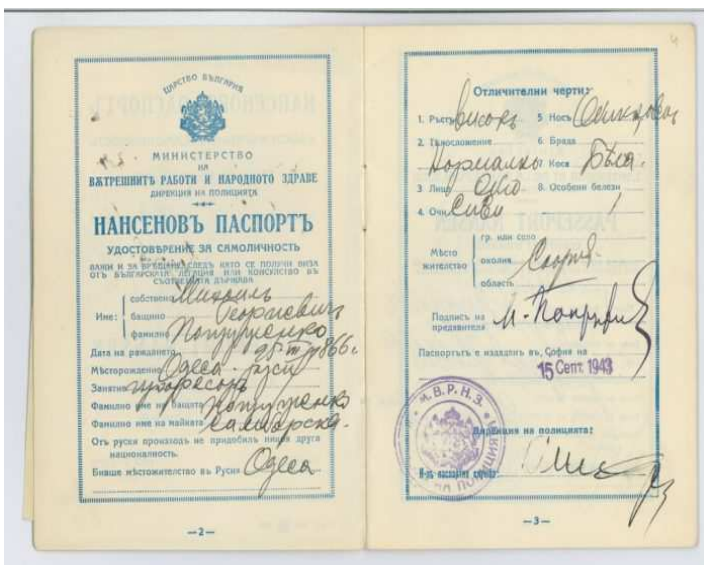 ЦАРСТВО БЪЛГАРИЯ
МИНИСТЕРСТВО
НА
ВѪТРЕШНИТѢ РАБОТИ И НАРОДНОТО ЗДРАВЕ
ДИРЕКЦИЯ НА ПОЛИЦИЯТА
НАНСЕНОВЪ ПАСПОРТЪ
УДОСТОВѢРЕНИЕ ЗА САМОЛИЧНОСТЬ
ВАЖИ И ЗА ВРЪЩАНЕ СЛЕДЪ КАТО СЕ ПОЛУЧИ ВИЗА
ОТЪ БЪЛГАРСКАТА ЛЕГАЦИЯ ИЛИ КОНСУЛСТВО ВЪ
СЪОТВЕТНАТА ДЪРЖАВА
собствено Михаилъ
Име: бащино Георгиевичъ
фамилно Попруженко
Дата на раждането 25 III 1866 г.
Мѣсторождение Одеса - Русия
Занятие професоръ
Фамилно име на бащата Попруженко
Фамилно име на майката
Отъ руски произходъ не придобилъ никоя друга
националность.
Бивше мѣстожителство въ Русия Одеса
—2—
4
Отличителни черти:
1. Ръстъ високъ 5 Носъ
2. Тѣлосложение 6. Брада
Нормално 7 Коса Бѣла.
3 Лице 8. Особени белези
4. Очи Сиви
гр. или село
Мѣсто жителство околия София
область
Подпись на предявителя М. Попруженко
Паспортътъ е издаденъ въ, София на
15 Септ. 1943
М. В. Р. Н. З.
Дирекция на полицията:
Н-къ паспортна служба:
—3—